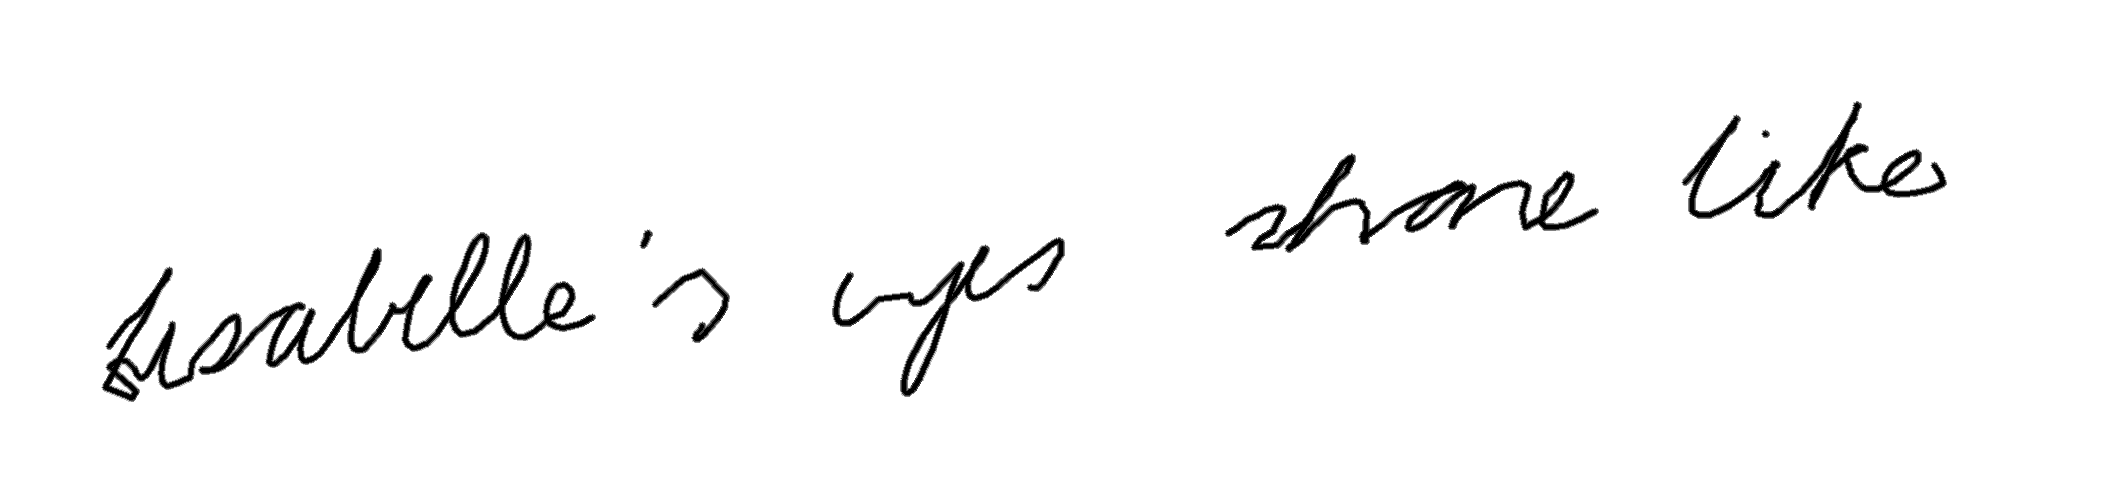 Lisabelle's eyes shone like